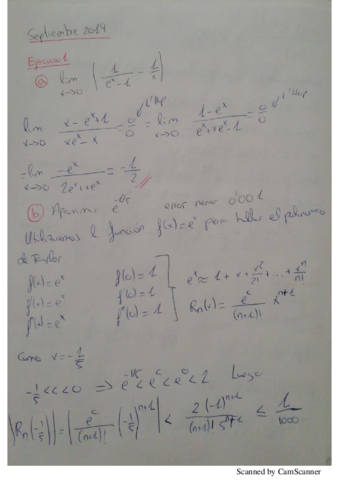 Septiembre 2019
Ejercicio 1
a) lim x→0 ( 1/(e^x-1) - 1/x )
lim x→0 (x-e^x+1)/(xe^x-x) = 0/0 L'Hop = lim x→0 (1-e^x)/(e^x+xe^x-1) = 0/0 L'Hop
= lim x→0 -e^x/(2e^x+xe^x) = -1/2
b) Aproximar e^(-1/5) error menor 0'001
Utilizamos la función f(x)=e^x para hallar el polinomio
de Taylor
f(x)=e^x f(0)=1 e^x ≈ 1+x+x^2/2!+...+x^n/n!
f'(x)=e^x f'(0)=1
f''(x)=e^x f''(0)=1 Rn(x)= e^c/(n+1)! x^(n+1)
Como x=-1/5
-1/5<c<0 ⇒ e^(-1/5)<e^c<e^0<2 Luego
|Rn(-1/5)|=|e^c/(n+1)! (-1/5)^(n+1)| < 2(-1)^(n+1)/((n+1)! 5^(n+1)) ≤ 1/1000
Scanned by CamScanner